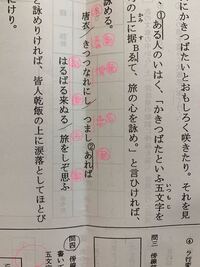 にかきつばたいとおもしろく咲きたり。それを見
①ある人のいはく、「かきつばたといふ五文字を
の上に据Bゑて、旅の心を詠め。」と言ひければ、
詠める。
唐衣／きつつなれにし／つまし②あれば
はるばる来ぬる／旅をしぞ思ふ
と詠めりければ、皆人乾飯の上に涙落としてほとび
にけり。
④ ラ行
問三 傍線
問四 傍線
五文字